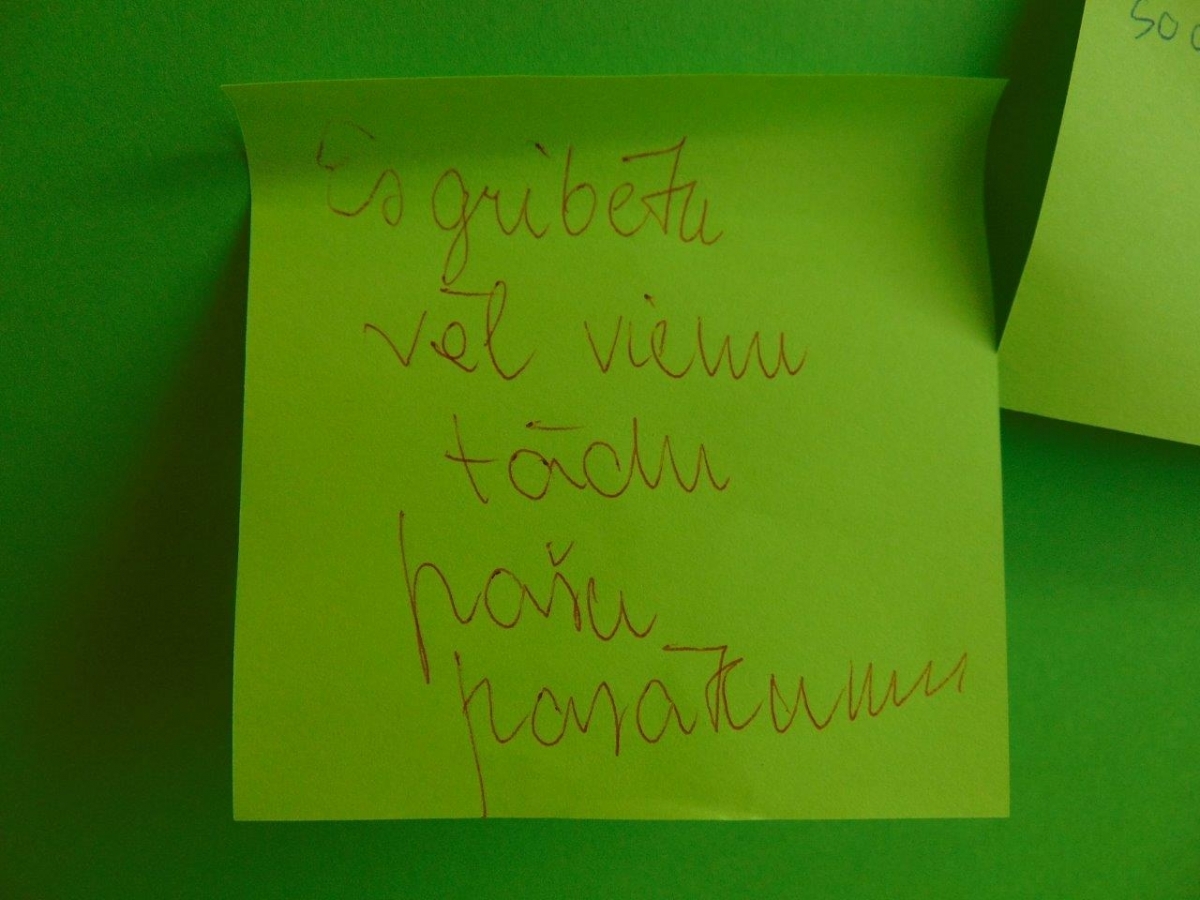 Es gribētu
vēl vienu
tādu
pašu
pasākumu
so